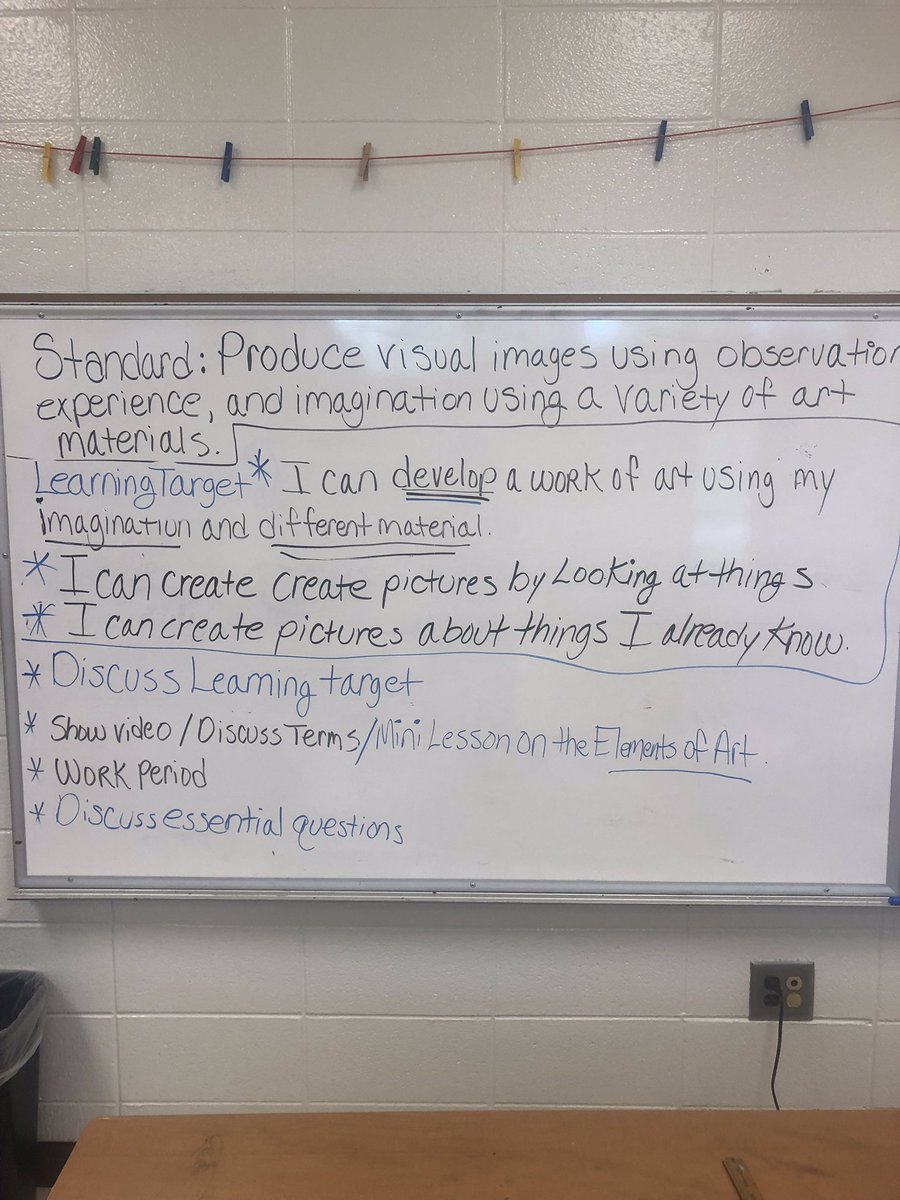 Standard: Produce visual images using observation
experience, and imagination using a variety of art
materials.
Learning Target * I can develop a work of art using my
imagination and different material.
* I can create create pictures by Looking at things
* I can create pictures about things I already know.
* Discuss Learning target
* Show video / Discuss Terms / Mini Lesson on the Elements of Art.
* Work Period
* Discuss essential questions